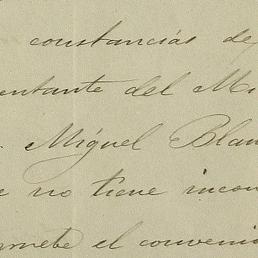 constancias de
entante del Mi
Miguel Blan
no tiene incon
mete el convenio